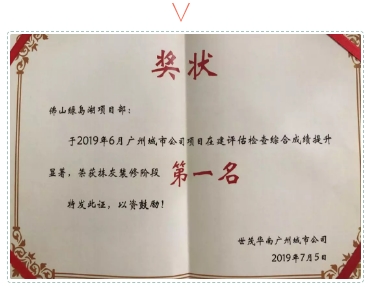 奖状
佛山绿岛湖项目部：
于2019年6月广州城市公司项目在建评估检查综合成绩提升
显著，荣获抹灰装修阶段 第一名
特发此证，以资鼓励！
世茂华南广州城市公司
2019年7月5日